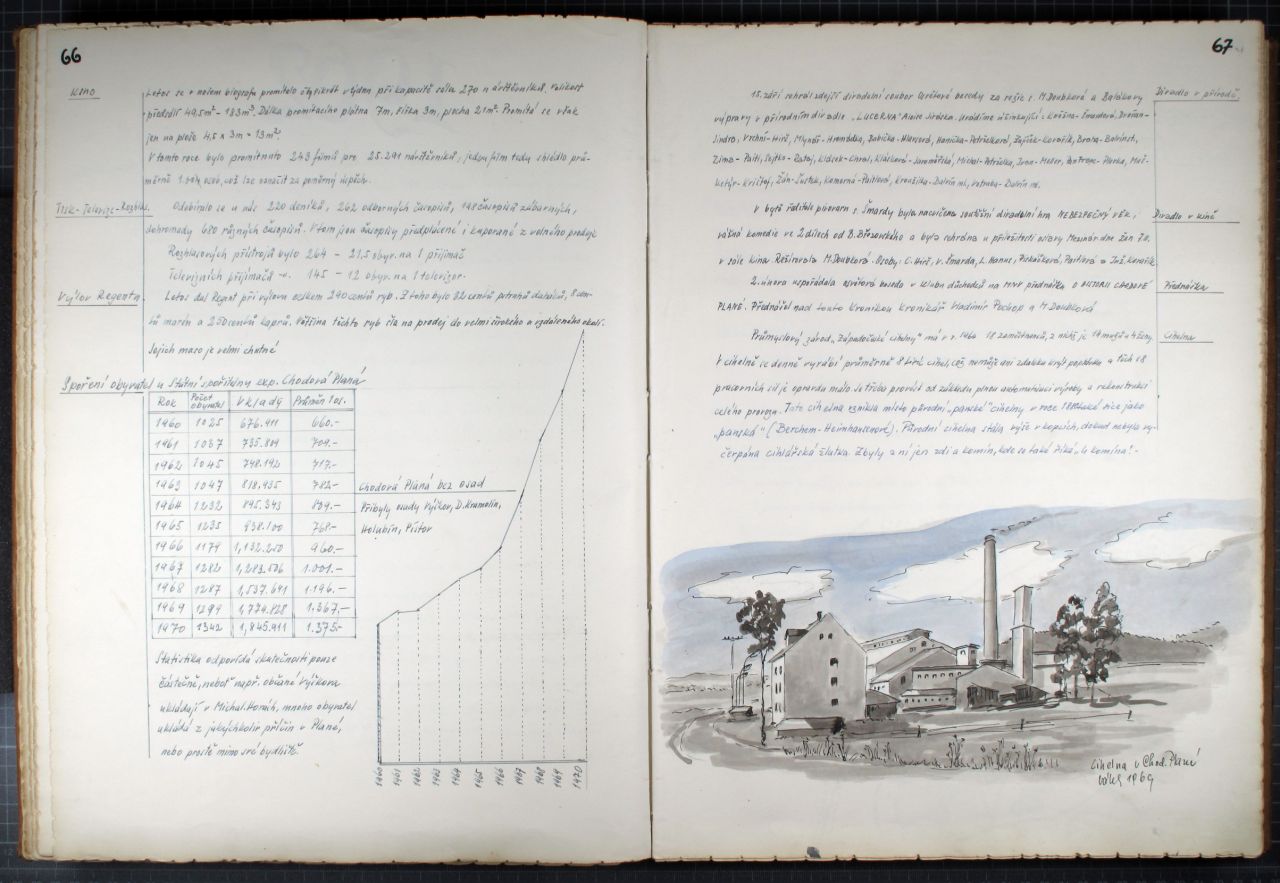 66
Kino
Letos se v našem biografu promítalo čtyřikrát týdně při kapacitě sálu 270 návštěvníků. Velikost
předsálí 49,5m² - 183m³. Délka promítacího plátna 7m, šířka 3m, plocha 21m². Promítá se však
jen na ploše 4,5 x 3m = 13m²
V tomto roce bylo promítnuto 243 filmů pro 25.291 návštěvníků, jeden film tedy shlédlo prů-
měrně osob, což lze označit za poměrný úspěch.
Tisk-Televize-Rozhlas.
Odebíralo se u nás 220 deníků, 262 odborných časopisů, 198 časopisů zábavných,
dohromady 680 různých časopisů. V tom jsou časopisy předplácené i kupované z volného prodeje
Rozhlasových přístrojů bylo 264 - 21,5 obyv. na 1 přijímač
Televizních přijímačů -"- 145 - 12 obyv. na 1 televizor.
Výlov Regenta.
Letos dal Regent při výlovu celkem 290 centů ryb. Z toho bylo 32 centů pstruhů duháků, 8 cen-
tů marén a 250 centů kaprů. Většina těchto ryb šla na prodej do velmi širokého a vzdáleného okolí.
Jejich maso je velmi chutné
Spoření obyvatel u Státní spořitelny exp. Chodová Planá
Rok Počet obyvatel Vklady Průměr 1 os.
1960 1025 676.911 660.-
1961 1037 735.804 709.-
1962 1045 748.192 717.-
1963 1047 818.935 782.-
1964 1232 895.343 839.-
1965 1235 938.100 768.-
1966 1179 1,132.250 960.-
1967 1282 1,283.506 1.001.-
1968 1287 1,537.691 1.196.-
1969 1299 1,774.828 1.367.-
1970 1342 1,845.911 1.375.-
Chodová Planá bez osad
Přibyly osady Výškov, D. Kramolín,
Holubín, Pístov
Statistika odpovídá skutečnosti pouze
částečně, neboť např. občané Výškova
ukládají v Michal. Horách, mnoho obyvatel
ukládá z jakýchkoliv příčin v Plané,
nebo prostě mimo své bydliště.
1960 1961 1962 1963 1964 1965 1966 1967 1968 1969 1970
67
Divadlo v přírodě
15. září sehrál zdejší divadelní soubor Osvětové besedy za režie s. M. Doubkové a Balákovy
výpravy v přírodním divadle "LUCERNA" Aloise Jiráska. Uvádíme účinkující: Kněžna-Šmardová, Dvořan-
Jindra, Vrchní-Hirš, Mlynář-Hromádka, Babička-Hanusová, Hanička-Petráčková, Zajíček-Kovařík, Braha-Balvínet,
Zíma-Paitl, Sejtko-Rataj, Klásek-Chval, Klásková-Jaroměřská, Michal-Petrůlka, Ivan-Meder, Pantrope-Plavka, Muš-
ketýr-Krištof, Žán-Šustek, Komorná-Paitlová, Kroužilka-Dalvín ml., Votruba-Dalvín ml.
Divadlo v kině
V bytě ředitele pivovaru s. Šmardy byla nacvičena soutěžní divadelní hra NEBEZPEČNÝ VĚK,
vážná komedie ve 2 dílech od B. Březovského a byla sehrána u příležitosti oslavy Mezinár. dne žen 7.3.
v sále kina. Režírovala M. Doubková. Osoby: C. Hirš, V. Šmarda, L. Hanus, Piskáčková, Paitlová a Jož. Kovařík
Přednáška
2. února uspořádala osvětová beseda v klubu důchodců na MNV přednášku O HISTORII CHODOVÉ
PLANÉ. Přednášel nad touto Kronikou Kronikář Vladimír Prokop a M. Doubková
Cihelna
Průmyslový závod "Západočeské cihelny" má v r. 1960 18 zaměstnanců, z nichž je 14 mužů a 4 ženy
V cihelně se denně vyrábí průměrně 8 tisíc cihel, což nemůže ani zdaleka krýt poptávku a těch 18
pracovních sil je opravdu málo. Je třeba provést od základu plnou automatizaci výroby a rekonstrukci
celého provozu. Tato cihelna vznikla místo původní "panské" cihelny v roce také sice jako
"panská" (Berchem-Heimhausenové). Původní cihelna stála výše v kopcích, dokud nebyla vy-
čerpána cihlářská žlutka. Zbyly z ní jen zdi a komín, kde se také říká "u komína"! -
Cihelna v Chod. Plané
1969